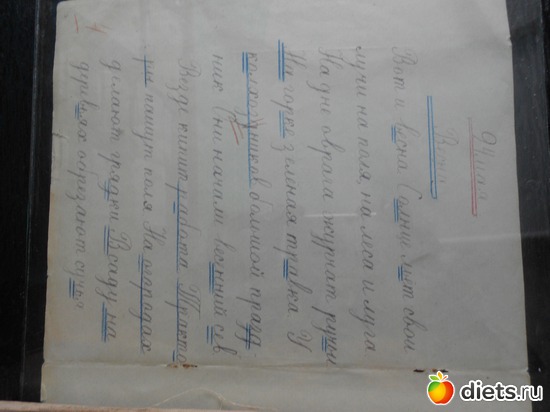 Весна
Вот и весна Солнце льёт свои
лучи на поля, на леса и луга
На дне оврага журчат ручьи
На горке зеленая травка У
колхозников большой празд-
ник Они начали весенний сев
Везде кипит работа Тракто
ры пашут поля. На огородах
делают грядки В саду на
деревьях обрезают сучья
4
diets.ru